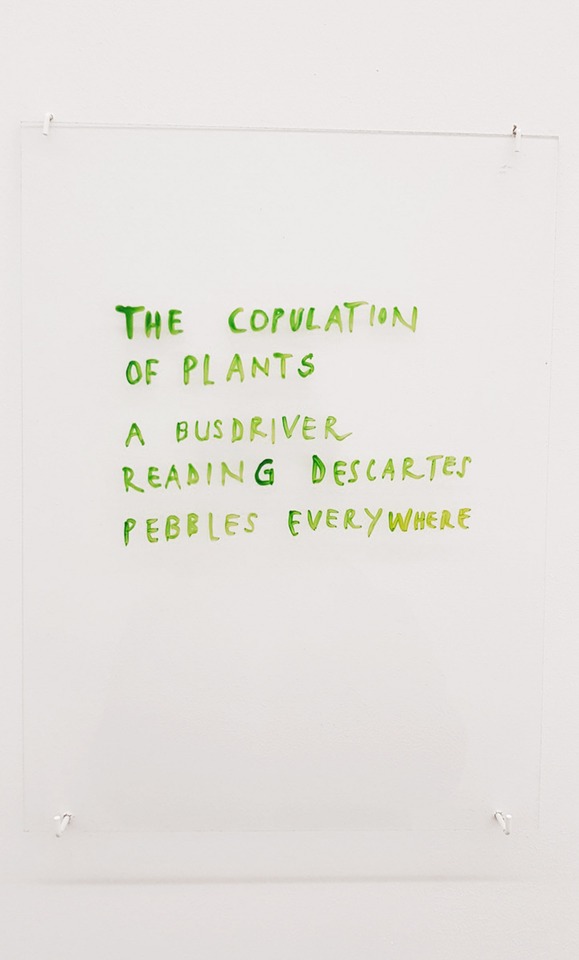 THE COPULATION
OF PLANTS
A BUSDRIVER
READING DESCARTES
PEBBLES EVERYWHERE